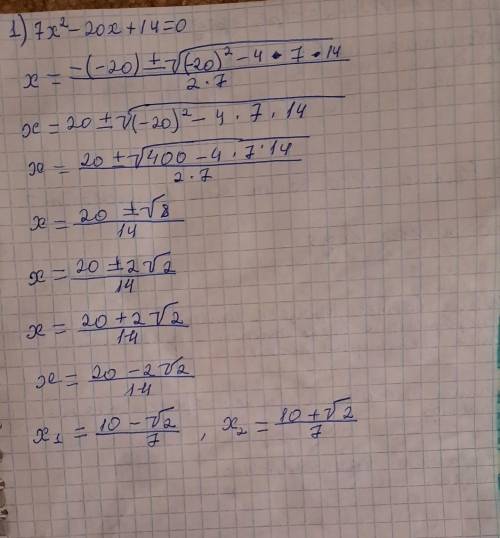 1) 7x² - 20x + 14 = 0
x = -(-20) ± √(-20)² - 4 · 7 · 14 / 2 · 7
x = 20 ± √(-20)² - 4 · 7 · 14
x = 20 ± √400 - 4 · 7 · 14 / 2 · 7
x = 20 ± √8 / 14
x = 20 ± 2√2 / 14
x = 20 + 2√2 / 14
x = 20 - 2√2 / 14
x₁ = 10 - √2 / 7 , x₂ = 10 + √2 / 7